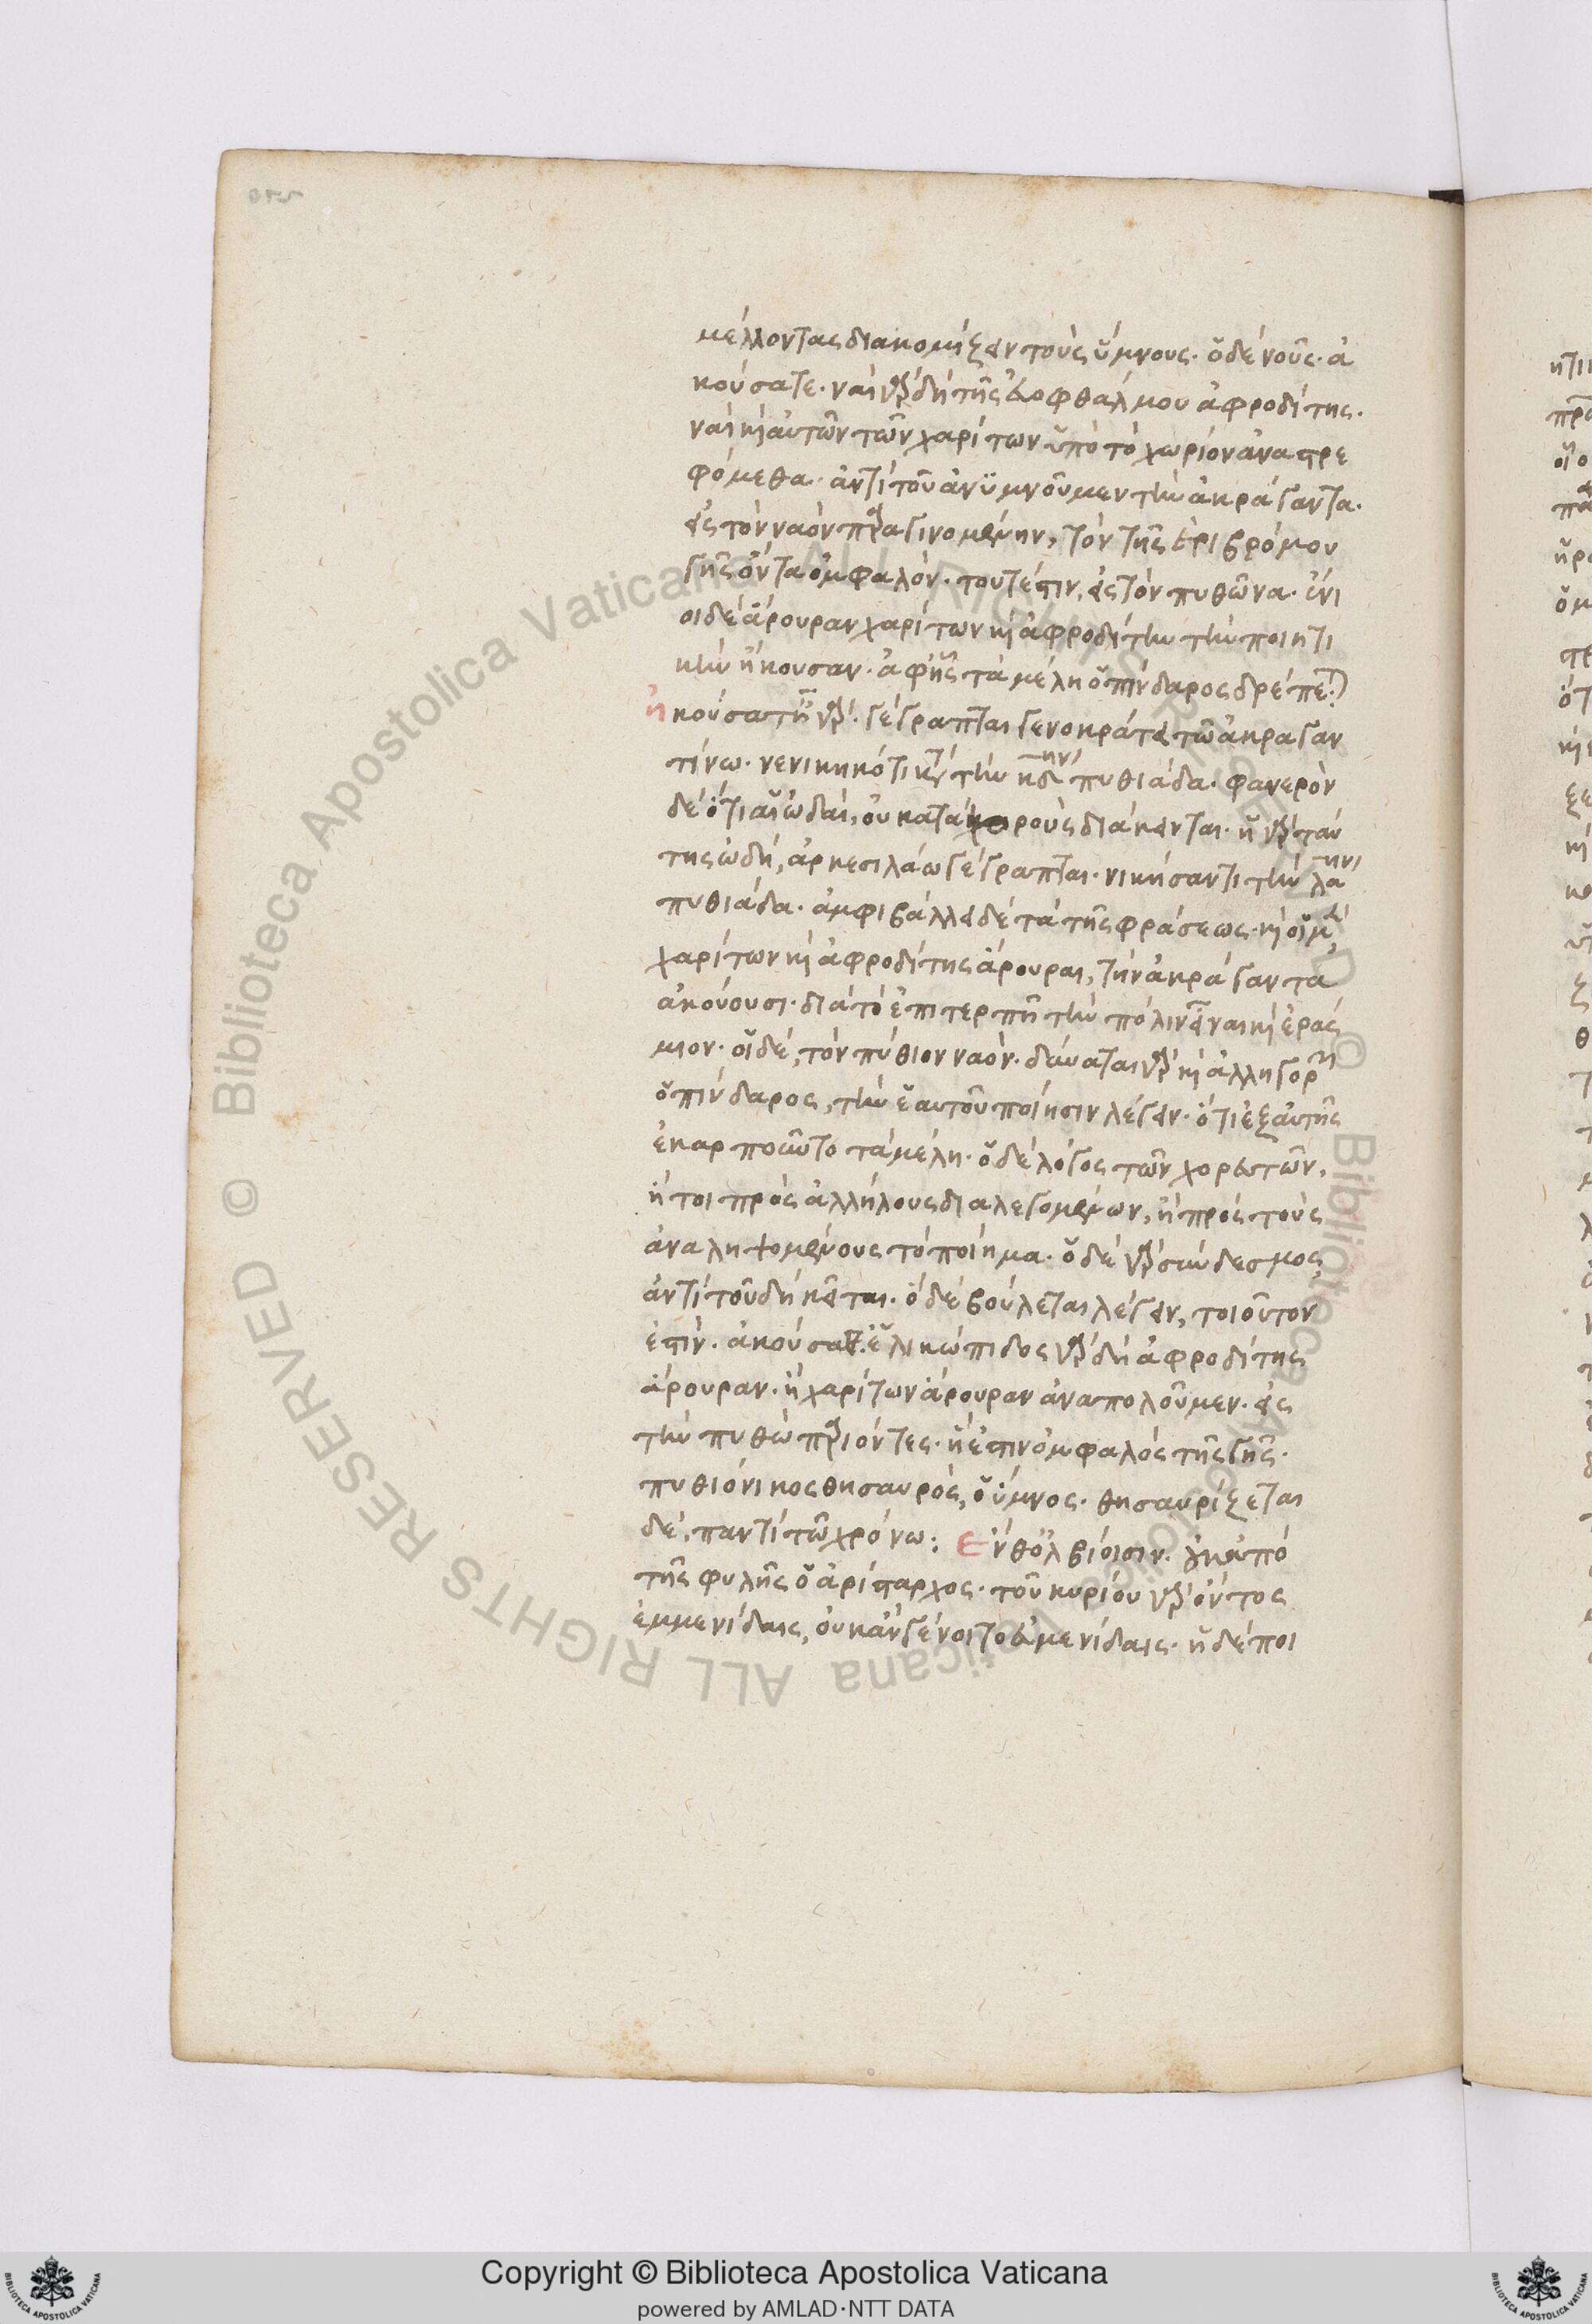 μέλλοντας διακομίζειν τοὺς ὕμνους· ὁ δὲ νοῦς· ἀ
κούσατε· ναὶ γὰρ δὴ τῆς εὐοφθάλμου ἀφροδίτης·
ναὶ κὶ αὐτῶν τῶν χαρίτων ὑπὸ τὸ χωρίον ἀναστρε
φόμεθα· ἀντὶ τοῦ ἀνϋμνοῦμεν τὴν ἀκράγαντα·
εἰς τὸν ναὸν παραγινομένην, τὸν τῆς ἐριβρόμου
γῆς ὄντα ὀμφαλόν· τουτέστιν, εἰς τὸν πυθῶνα· ἔνι
οι δὲ ἄρουραν χαρίτων κὶ ἀφροδίτην τὴν ποιητι
κὴν ἤκουσαν· ἀφ' ἧς τὰ μέλη ὁ πίνδαρος δρέπεται:
ἠκούσατη γάρ· γέγραπται ξενοκράτει τῶ ἀκραγαν
τίνω· νενικηκότι κατὰ τὴν κδ ην πυθιάδα· φανερὸν
δὲ ὅτι αἱ ὠδαὶ, οὐ κατὰ χρους διάκεινται· ἡ γὰρ ταύ
της ὠδή, ἀρκεσιλάω γέγραπται· νικήσαντι τὴν λα ην
πυθιάδα· ἀμφιβάλλει δὲ τὰ τῆς φράσεως· κὶ οἱ μὲν
χαρίτων κὶ ἀφροδίτης ἄρουραι, τὴν ἀκράγαντα
ἀκούουσι· διὰ τὸ ἐπιτερπῆ τὴν πόλιν εἶναι κὶ ἐράς
μιον· οἱ δὲ, τὸν πύθιον ναόν· δύναται γὰρ κὶ ἀλληγορεῖν
ὁ πίνδαρος, τὴν ἑαυτοῦ ποίησιν λέγειν· ὅτι ἐξ αὐτῆς
ἐκαρποῦτο τὰ μέλη· ὁ δὲ λόγος τῶν χορευτῶν,
ἤτοι πρὸς ἀλλήλους διαλεγομένων, ἢ πρὸς τοὺς
ἀναληψομένους τὸ ποίημα· ὁ δὲ γὰρ σύνδεσμος,
ἀντὶ τοῦ δὴ κεῖται· ὃ δὲ βούλεται λέγειν, τοιοῦτον
ἐστίν· ἀκούσατε· ἑλικώπιδος γὰρ δὴ ἀφροδίτης
ἄρουραν· ἢ χαρίτων ἄρουραν ἀναπολοῦμεν· εἰς
τὴν πυθὼ παριόντες· ἥ ἐστιν ὀμφαλὸς τῆς γῆς·
πυθιόνικος θησαυρός, ὁ ὕμνος· θησαυρίζεται
δὲ, παντὶ τῶ χρόνω: Ενθ' ὀλβίοισιν· ἀπὸ
τῆς φυλῆς ὁ ἀρίσταρχος· τοῦ κυρίου γὰρ ὄντος
ἐμμενίδαις, οὐκ ἂν γένοιτο εὐμενίδαις· ἡ δὲ ποι